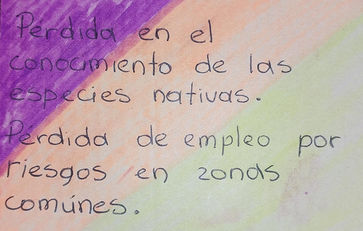 Perdida en el
conocimiento de las
especies nativas.
Perdida de empleo por
riesgos en zonas
comúnes.